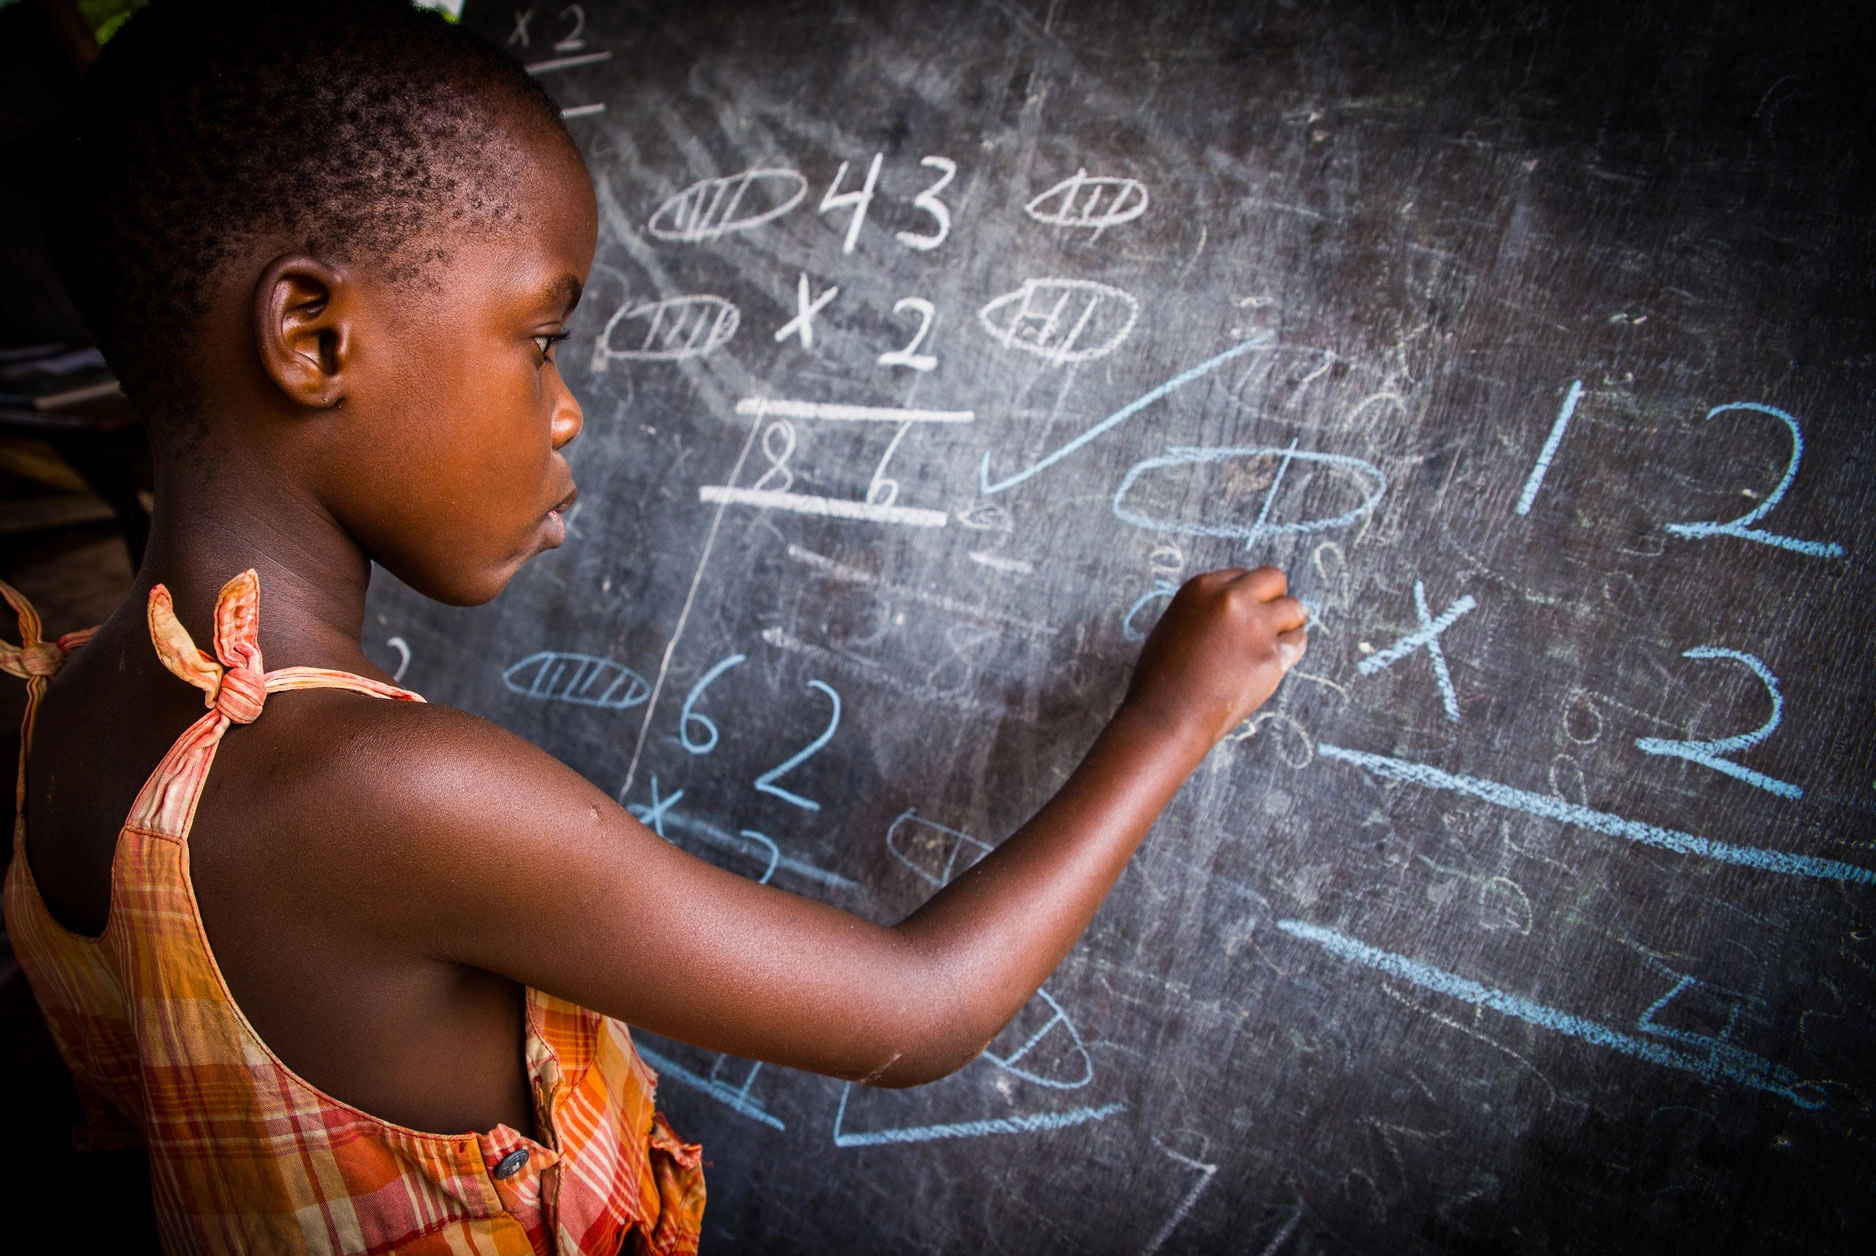 x 2
43
x 2
86
12
x 2
4
62
x 2